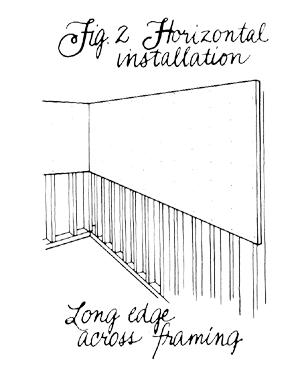 Fig. 2 Horizontal
installation
Long edge
across framing